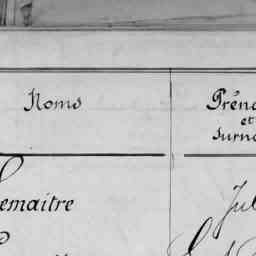 Noms
Prén
et
Surn
Lemaitre
Jul